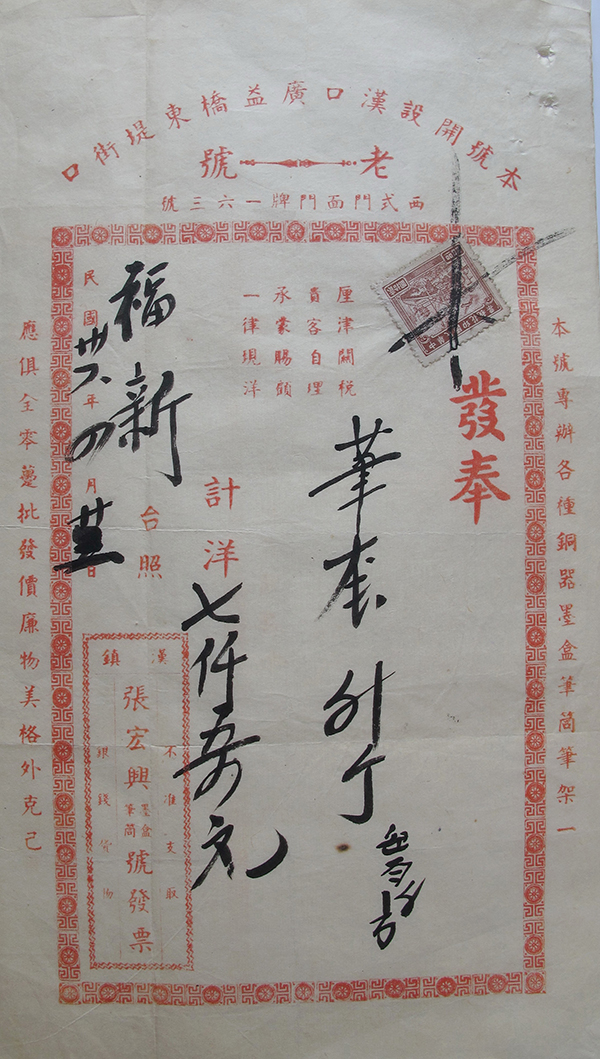 本號開設漢口廣益橋東堤街口
老號
西式門面門牌一六三號
本號專辦各種銅器墨盒筆筒筆架一
發奉
厘津關稅
貴客自理
承蒙賜顧
一律現洋
筆
計洋
七仟
元
福新
台照
民國卅六年四月廿五日
漢鎮
張宏興墨盒筆筒號發票
不准支取
銀錢貨物
應俱全零躉批發價廉物美格外克己